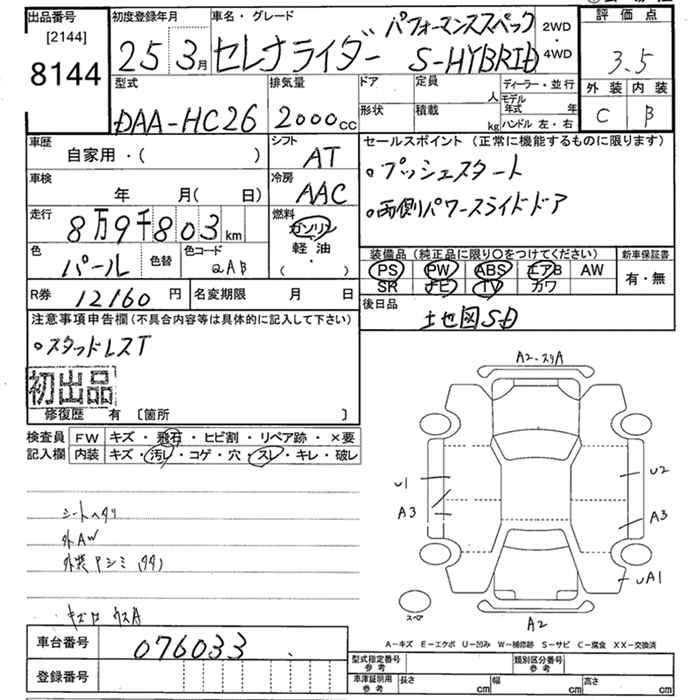 出品番号
[2144]
8144
初度登録年月
25 3月
車名・グレード
パフォーマンススペック
セレナライダー S-HYBRID
2WD
・
4WD
評価点
3.5
外装 内装
C B
型式
DAA-HC26
排気量
2000cc
ドア
定員
人
形状
積載
kg
ディーラー・並行
モデル年式 年
ハンドル 左・右
車歴
自家用・( )
シフト
AT
車検
年 月( 日)
冷房
AAC
走行
8万9千803km
燃料
ガソリン
軽油
・
( )
色
パール
色替
色コード
QAB
R券
12160円
名変期限 月 日
セールスポイント (正常に機能するものに限ります)
・プッシュスタート
・両側パワースライドドア
装備品(純正品に限り○をつけてください)
PS PW ABS エアB AW
SR ナビ TV カワ
新車保証書
有・無
後日品
土地図SD
注意事項申告欄(不具合内容等は具体的に記入して下さい)
・スタッドレスT
初出品
修復歴 有 [箇所 ]
検査員
記入欄
FW キズ・飛石・ヒビ割・リペア跡・×要
内装 キズ・汚レ・コゲ・穴・スレ・キレ・破レ
シートヘタリ
外AW
A2-スリA
U1
A3
U2
A3
UA1
A2
スペア
A－キズ E－エクボ U－凹み W－補修跡 S－サビ C－腐食 XX－交換済
車台番号
076033
登録番号
型式指定番号
参考
類別区分番号
参考
車庫証明用
参考
長さ cm
幅 cm
高さ cm